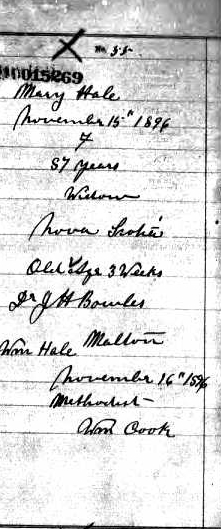 No. 35.
010015269
Mary Hale
November 15" 1896
F
87 Years
Widow
Nova Scotia
Old Age 3 Weeks
Dr J H Bowles
Malton
Wm Hale
November 16" 1896
Methodist
Wm Cook